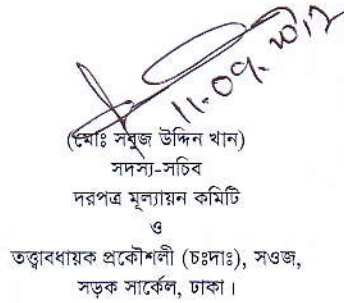 ১১.০৭.২০১২
(মোঃ সবুজ উদ্দিন খান)
সদস্য-সচিব
দরপত্র মূল্যায়ন কমিটি
ও
তত্ত্বাবধায়ক প্রকৌশলী (চঃদাঃ), সওজ,
সড়ক সার্কেল, ঢাকা।